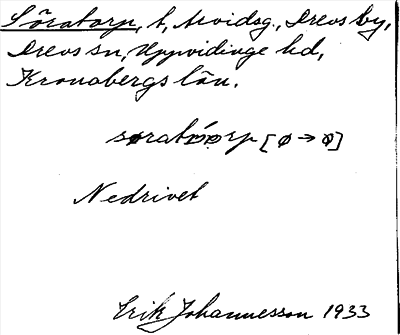 Söratorp, t, Arvidsg., Drevs by,
Drevs sn, Uppvidinge hd,
Kronobergs län.
søratø̀ørp [ø → ø]
Nedrivet
Erik Johannesson 1933